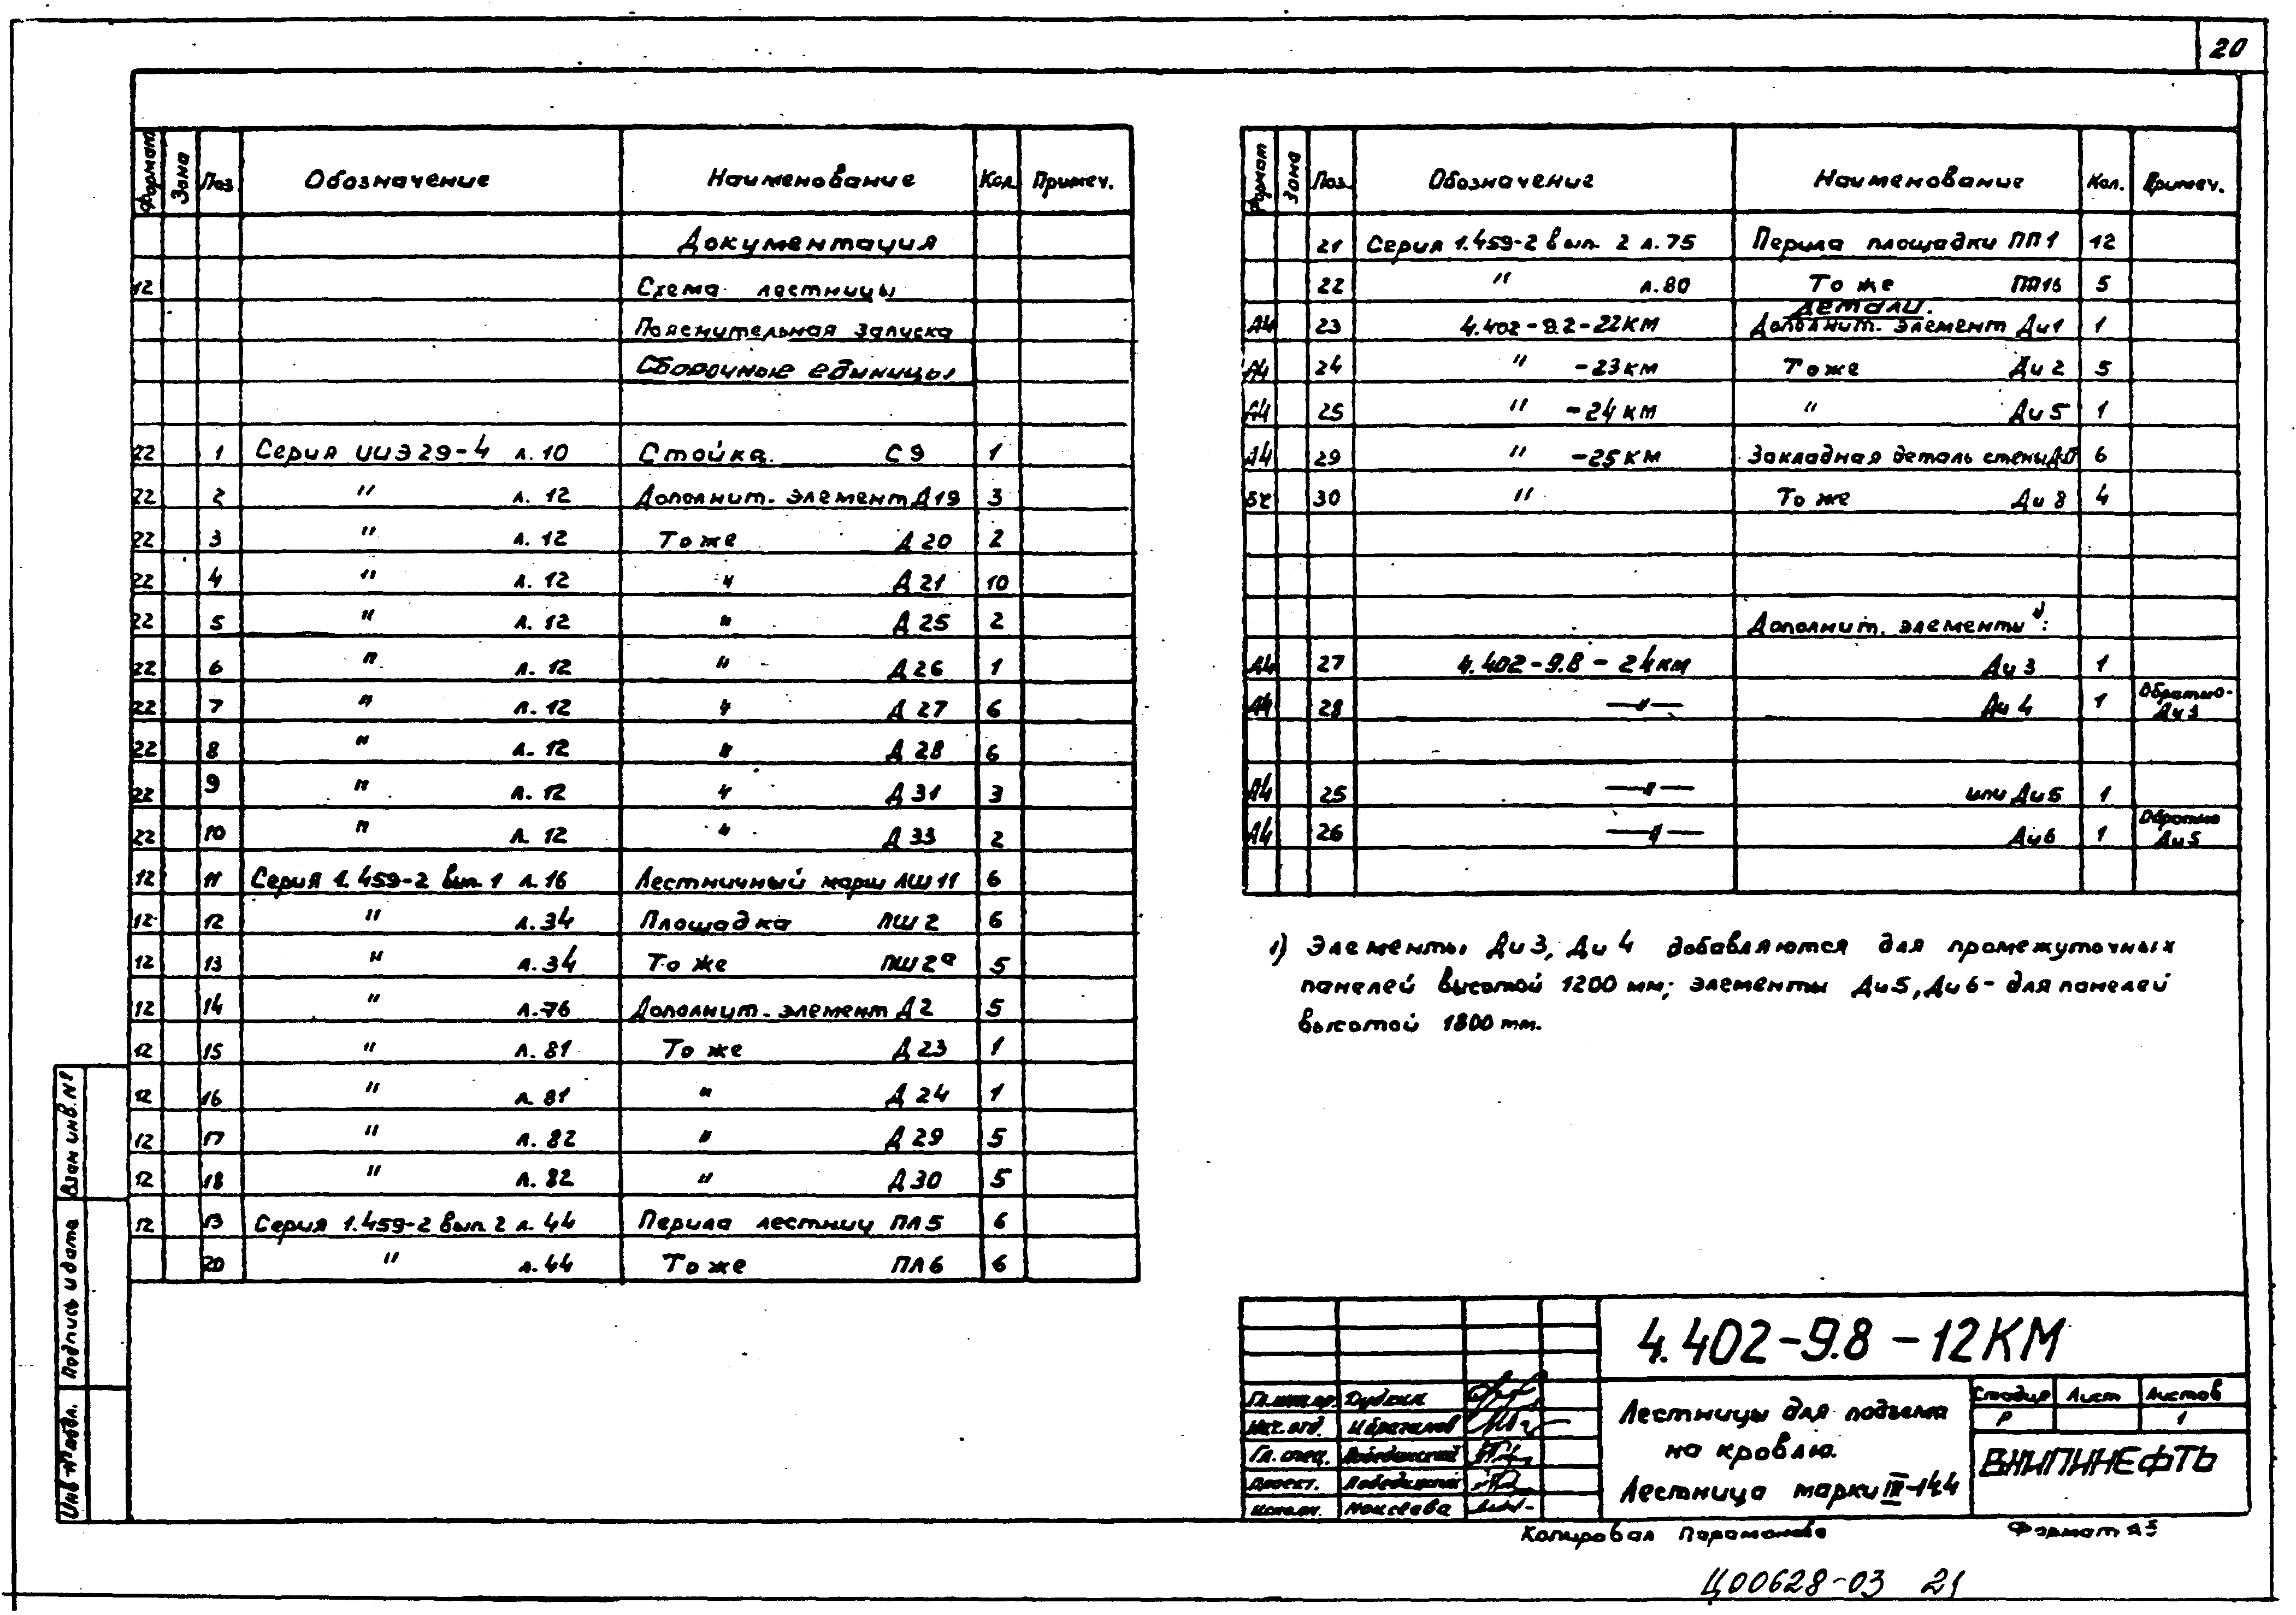 20
Формат Зона Поз. Обозначение Наименование Кол. Примеч.
Документация
12 Схема лестницы
Пояснительная записка
Сборочные единицы
22 1 Серия ИИЭ29-4 л. 10 Стойка С9 1
22 2 " л. 12 Дополнит. элемент Д19 3
22 3 " л. 12 То же Д20 2
22 4 " л. 12 " Д21 10
22 5 " л. 12 " Д25 2
22 6 " л. 12 " Д26 1
22 7 " л. 12 " Д27 6
22 8 " л. 12 " Д28 6
22 9 " л. 12 " Д31 3
22 10 " л. 12 " Д33 2
12 11 Серия 1.459-2 вып. 1 л. 16 Лестничный марш ЛШ11 6
12 12 " л. 34 Площадка ПШ2 6
12 13 " л. 34 То же ПШ2а 5
12 14 " л. 76 Дополнит. элемент Д2 5
12 15 " л. 81 То же Д23 1
12 16 " л. 81 " Д24 1
12 17 " л. 82 " Д29 5
12 18 " л. 82 " Д30 5
12 19 Серия 1.459-2 вып. 2 л. 44 Перила лестниц ПЛ5 6
20 " л. 44 То же ПЛ6 6
Формат Зона Поз. Обозначение Наименование Кол. Примеч.
21 Серия 1.459-2 вып. 2 л. 75 Перила площадки ПП1 12
22 " л. 80 То же ПП16 5
Детали.
А4 23 4.402-9.2-22КМ Дополнит. элемент Ди1 1
А4 24 " -23КМ То же Ди2 5
А4 25 " -24КМ " Ди5 1
А4 29 " -25КМ Закладная деталь стены 6
БЧ 30 " То же Ди8 4
Дополнит. элементы 1):
А4 27 4.402-9.8-24КМ Ди3 1
А4 28 —"— Ди4 1 Обратно Ди3
А4 25 —"— или Ди5 1
А4 26 —"— Ди6 1 Обратно Ди5
1) Элементы Ди3, Ди4 добавляются для промежуточных
панелей высотой 1200 мм; элементы Ди5, Ди6 - для панелей
высотой 1800 мм.
Взам инв. №
Подпись и дата
Инв № подл.
4.402-9.8-12КМ
Гл. инж. пр. Дубкин
Нач. отд. Ибрагимов
Гл. спец. Победимский
Проект. Победимский
Исполн. Моисеева
Лестницы для подъема
на кровлю.
Лестница марки III-14.4
Стадия Лист Листов
Р 1
ВНИПИНЕФТЬ
Копировал Парамонова Формат А3
Ц00628-03 21